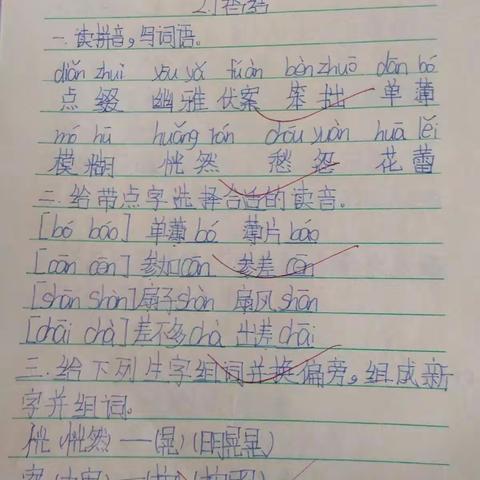 一.读拼音,写词语。
diǎn zhuì yōu yǎ fú àn bèn zhuō dān bó
点缀 幽雅 伏案 笨拙 单薄
mó hū huǎng rán chóu yuàn huā lěi
模糊 恍然 愁怨 花蕾
二.给带点字选择合适的读音。
[bó báo] 单薄 bó 薄片 báo
[cān cēn] 参加 cān 参差 cēn
[shān shàn] 扇子 shàn 扇风 shān
[chāi chà] 差不多 chà 出差 chāi
三.给下列生字组词并换偏旁,组成新
字并组词。
恍(恍然)——(晃)(明晃晃)